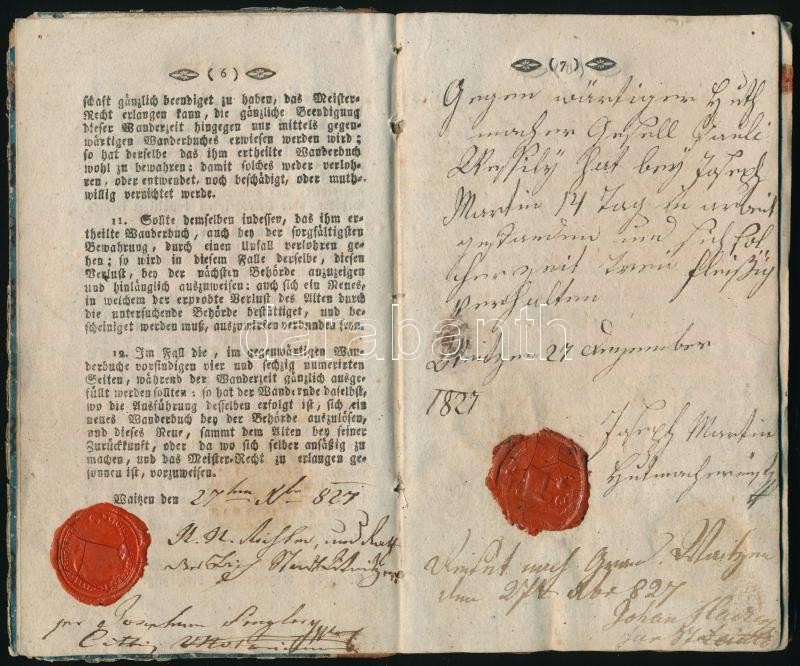 ( 6 )
schaft gänzlich beendiget zu haben, das Meister-
Recht erlangen kann, die gänzliche Beendigung
dieser Wanderzeit hingegen nur mittels gegen-
wärtigen Wanderbuches erwiesen werden wird;
so hat derselbe das ihm ertheilte Wanderbuch
wohl zu bewahren: damit solches weder verloh-
ren, oder entwendet, noch beschädigt, oder muth-
willig vernichtet werde.
11. Sollte demselben indessen, das ihm er-
theilte Wanderbuch, auch bey der sorgfältigsten
Bewahrung, durch einen Unfall verlohren ge-
hen: so wird in diesem Falle derselbe, diesen
Verlust, bey der nächsten Behörde anzuzeigen
und hinlänglich auszuweisen: auch sich ein Neues,
in welchem der erprobte Verlust des Alten durch
die untersuchende Behörde bestättiget, und be-
scheiniget werden muß, auszuwirken verbunden seyn.
12. Im Fall die, im gegenwärtigen Wan-
derbuche vorfindigen vier und sechzig numerirten
Seiten, während der Wanderzeit gänzlich ausge-
füllt werden sollten: so hat der Wandernde daselbst,
wo die Ausführung desselben erfolgt ist, sich ein
neues Wanderbuch bey der Behörde auszulösen,
und dieses Neue, sammt dem Alten bey seiner
Zurückkunft, oder da wo sich selber ansäßig zu
machen, und das Meister-Recht zu erlangen ge-
sonnen ist, vorzuweisen.
Waitzen den 27ten Xbr 827
N. N. Richter, und Rath
per Josephum
( 7 )
Gegen wärtiger Huth
macher Gesell Pauli
Wessily hat bey Joseph
Martin 14 Tag in arbeit
gestanden und sich sol
cher zeit treu fleißig
verhalten
Weitzen 27 Dezember
1827
Joseph Martin
Hutmacher
nach Gran. Waitzen
den 27t Xbr 827
Johan
darabanth